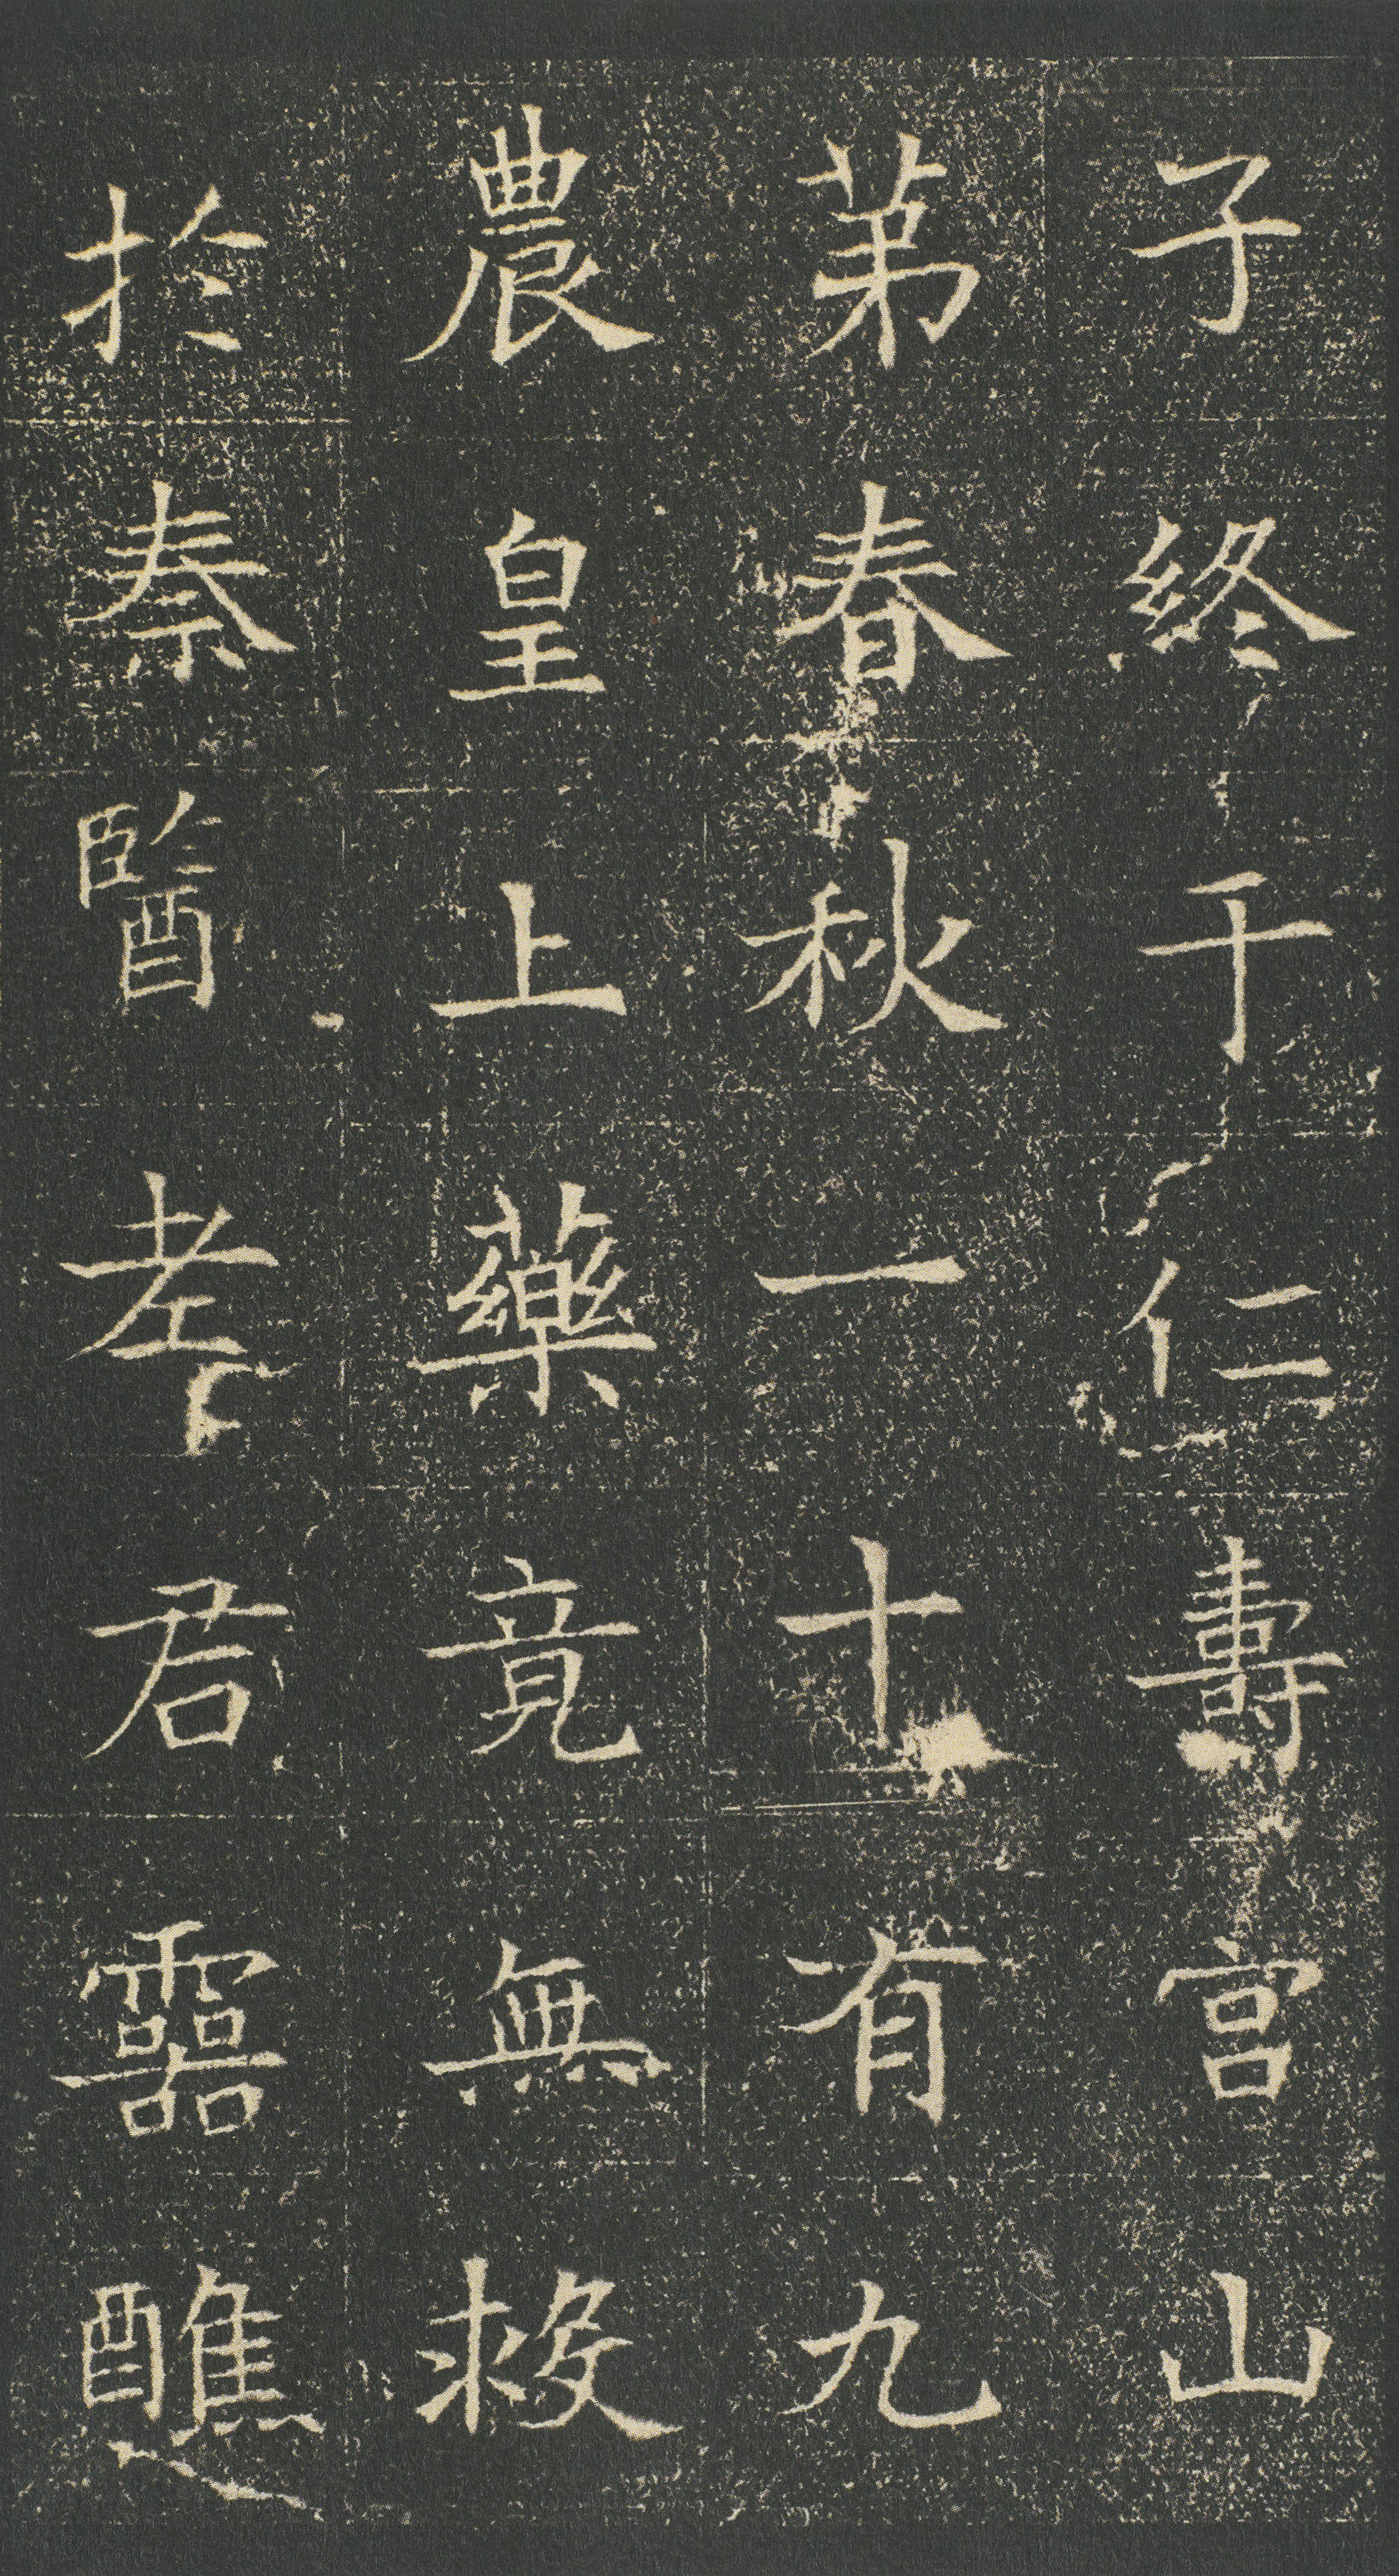 子終于仁壽宮山
苐春秋一十有九
農皇上藥竟無救
扵秦醫老君靈醮